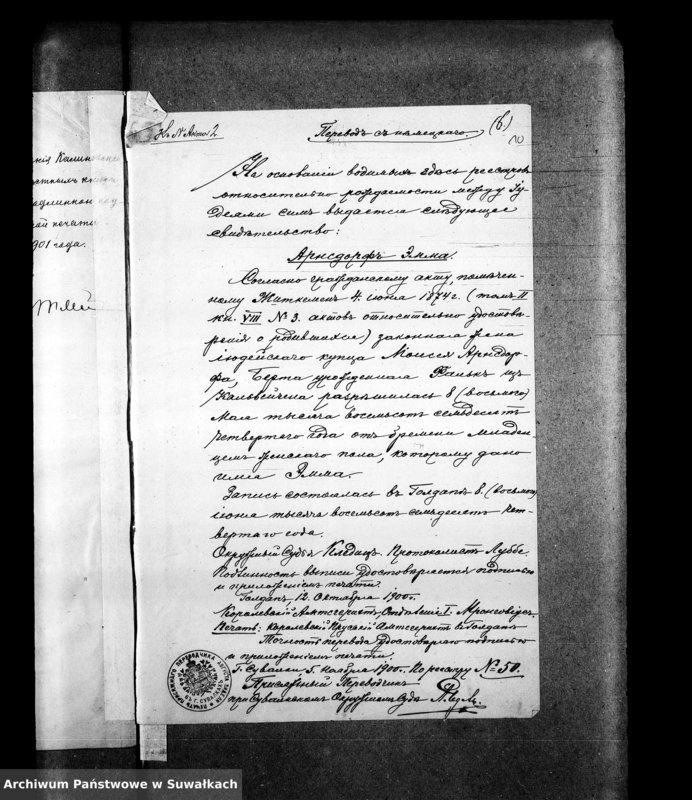 нія Калиновск
одлинной
ной печати
901 года.
Къ № Акта 2
Переводъ съ нѣмецкаго.
(6)
10
На основаніи водимыхъ здѣсь реестровъ
относительно рождаемости между Іу-
деями симъ выдается слѣдующее
свидѣтельство:
Арнсдорфъ Эмма.
Согласно гражданскому акту, помѣчен-
ному Житкеменъ 4 іюня 1874 г. (томъ II
кн. VIII № 3. актовъ относительно удостовѣ-
ренія о родившихся) законная жена
іюдейскаго купца Моисея Арнсдор-
фа, Берта урожденная Фалькъ изъ
разрѣшилась 8 (восьмого)
Мая тысяча восемьсотъ семьдесятъ
четвертаго года отъ бремени младен-
цемъ женскаго пола, которому дано
имя Эмма.
Запись состоялась въ Голдапѣ 8. (восьмого)
іюня тысяча восемьсотъ семьдесятъ чет-
вертаго года.
Окружный Судья Протоколистъ Луббе.
Подлинность выписи удостовѣряется подписью
и приложеніемъ печати.
Голдапъ, 12. Октября 1900 г.
Королевскій Амтсгерихтъ, Отдѣленіе I.
Печать: Королевскій Прусскій Амтсгерихтъ въ Голдапѣ
Точность перевода удостовѣряю подписью
и приложеніемъ печати.
Г. Сувалки 5. Ноября 1900 г. По реестру № 50.
Присяжный Переводчикъ
при Сувалкскомъ Окружномъ Судѣ
Archiwum Państwowe w Suwałkach